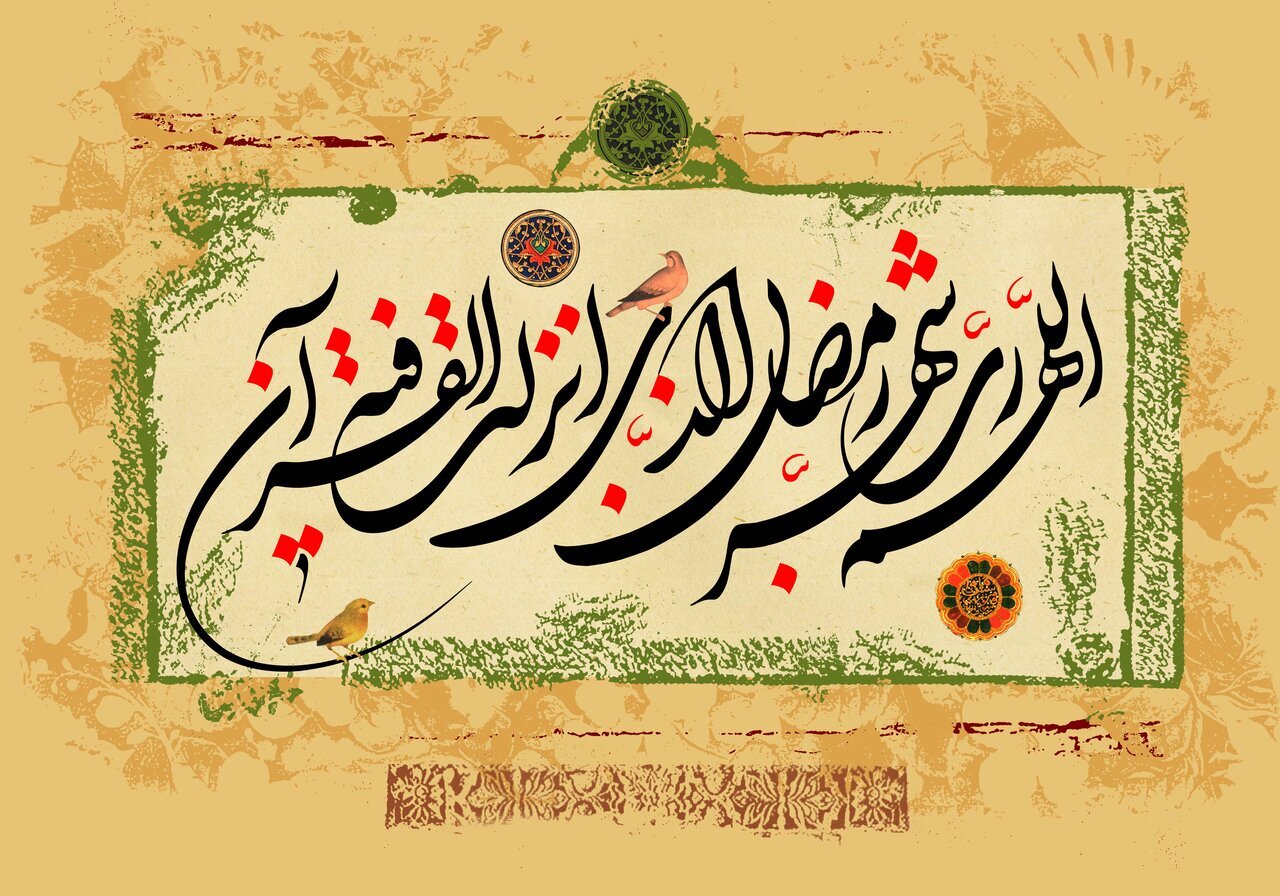 اللهم رب شهر رمضان الذی انزلت فیه القرآن